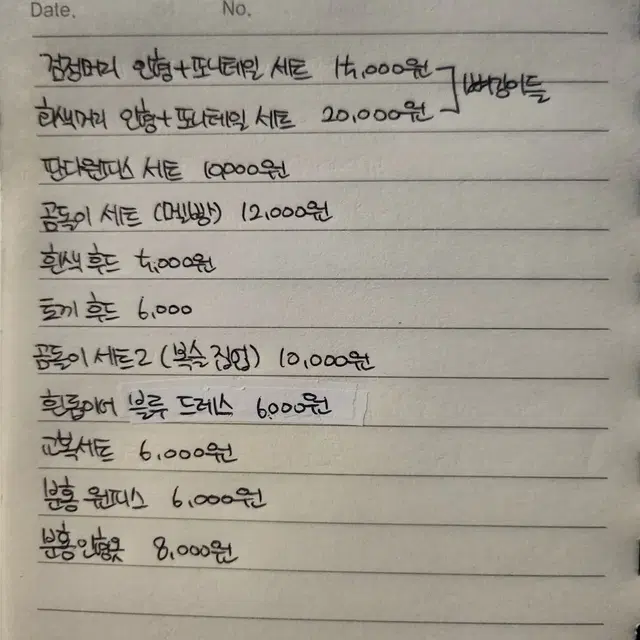 Date. No.
검정머리 인형+포니테일 세트 15,000원
흰색머리 인형+포니테일 세트 20,000원
뼈깅이들
판다원피스 세트 10,000원
곰돌이 세트 (멜빵) 12,000원
흰색 후드 5,000원
토끼 후드 6,000
곰돌이 세트2 (복슬 집업) 10,000원
블루 드레스 6,000원
교복세트 6,000원
분홍 원피스 6,000원
분홍인형옷 8,000원